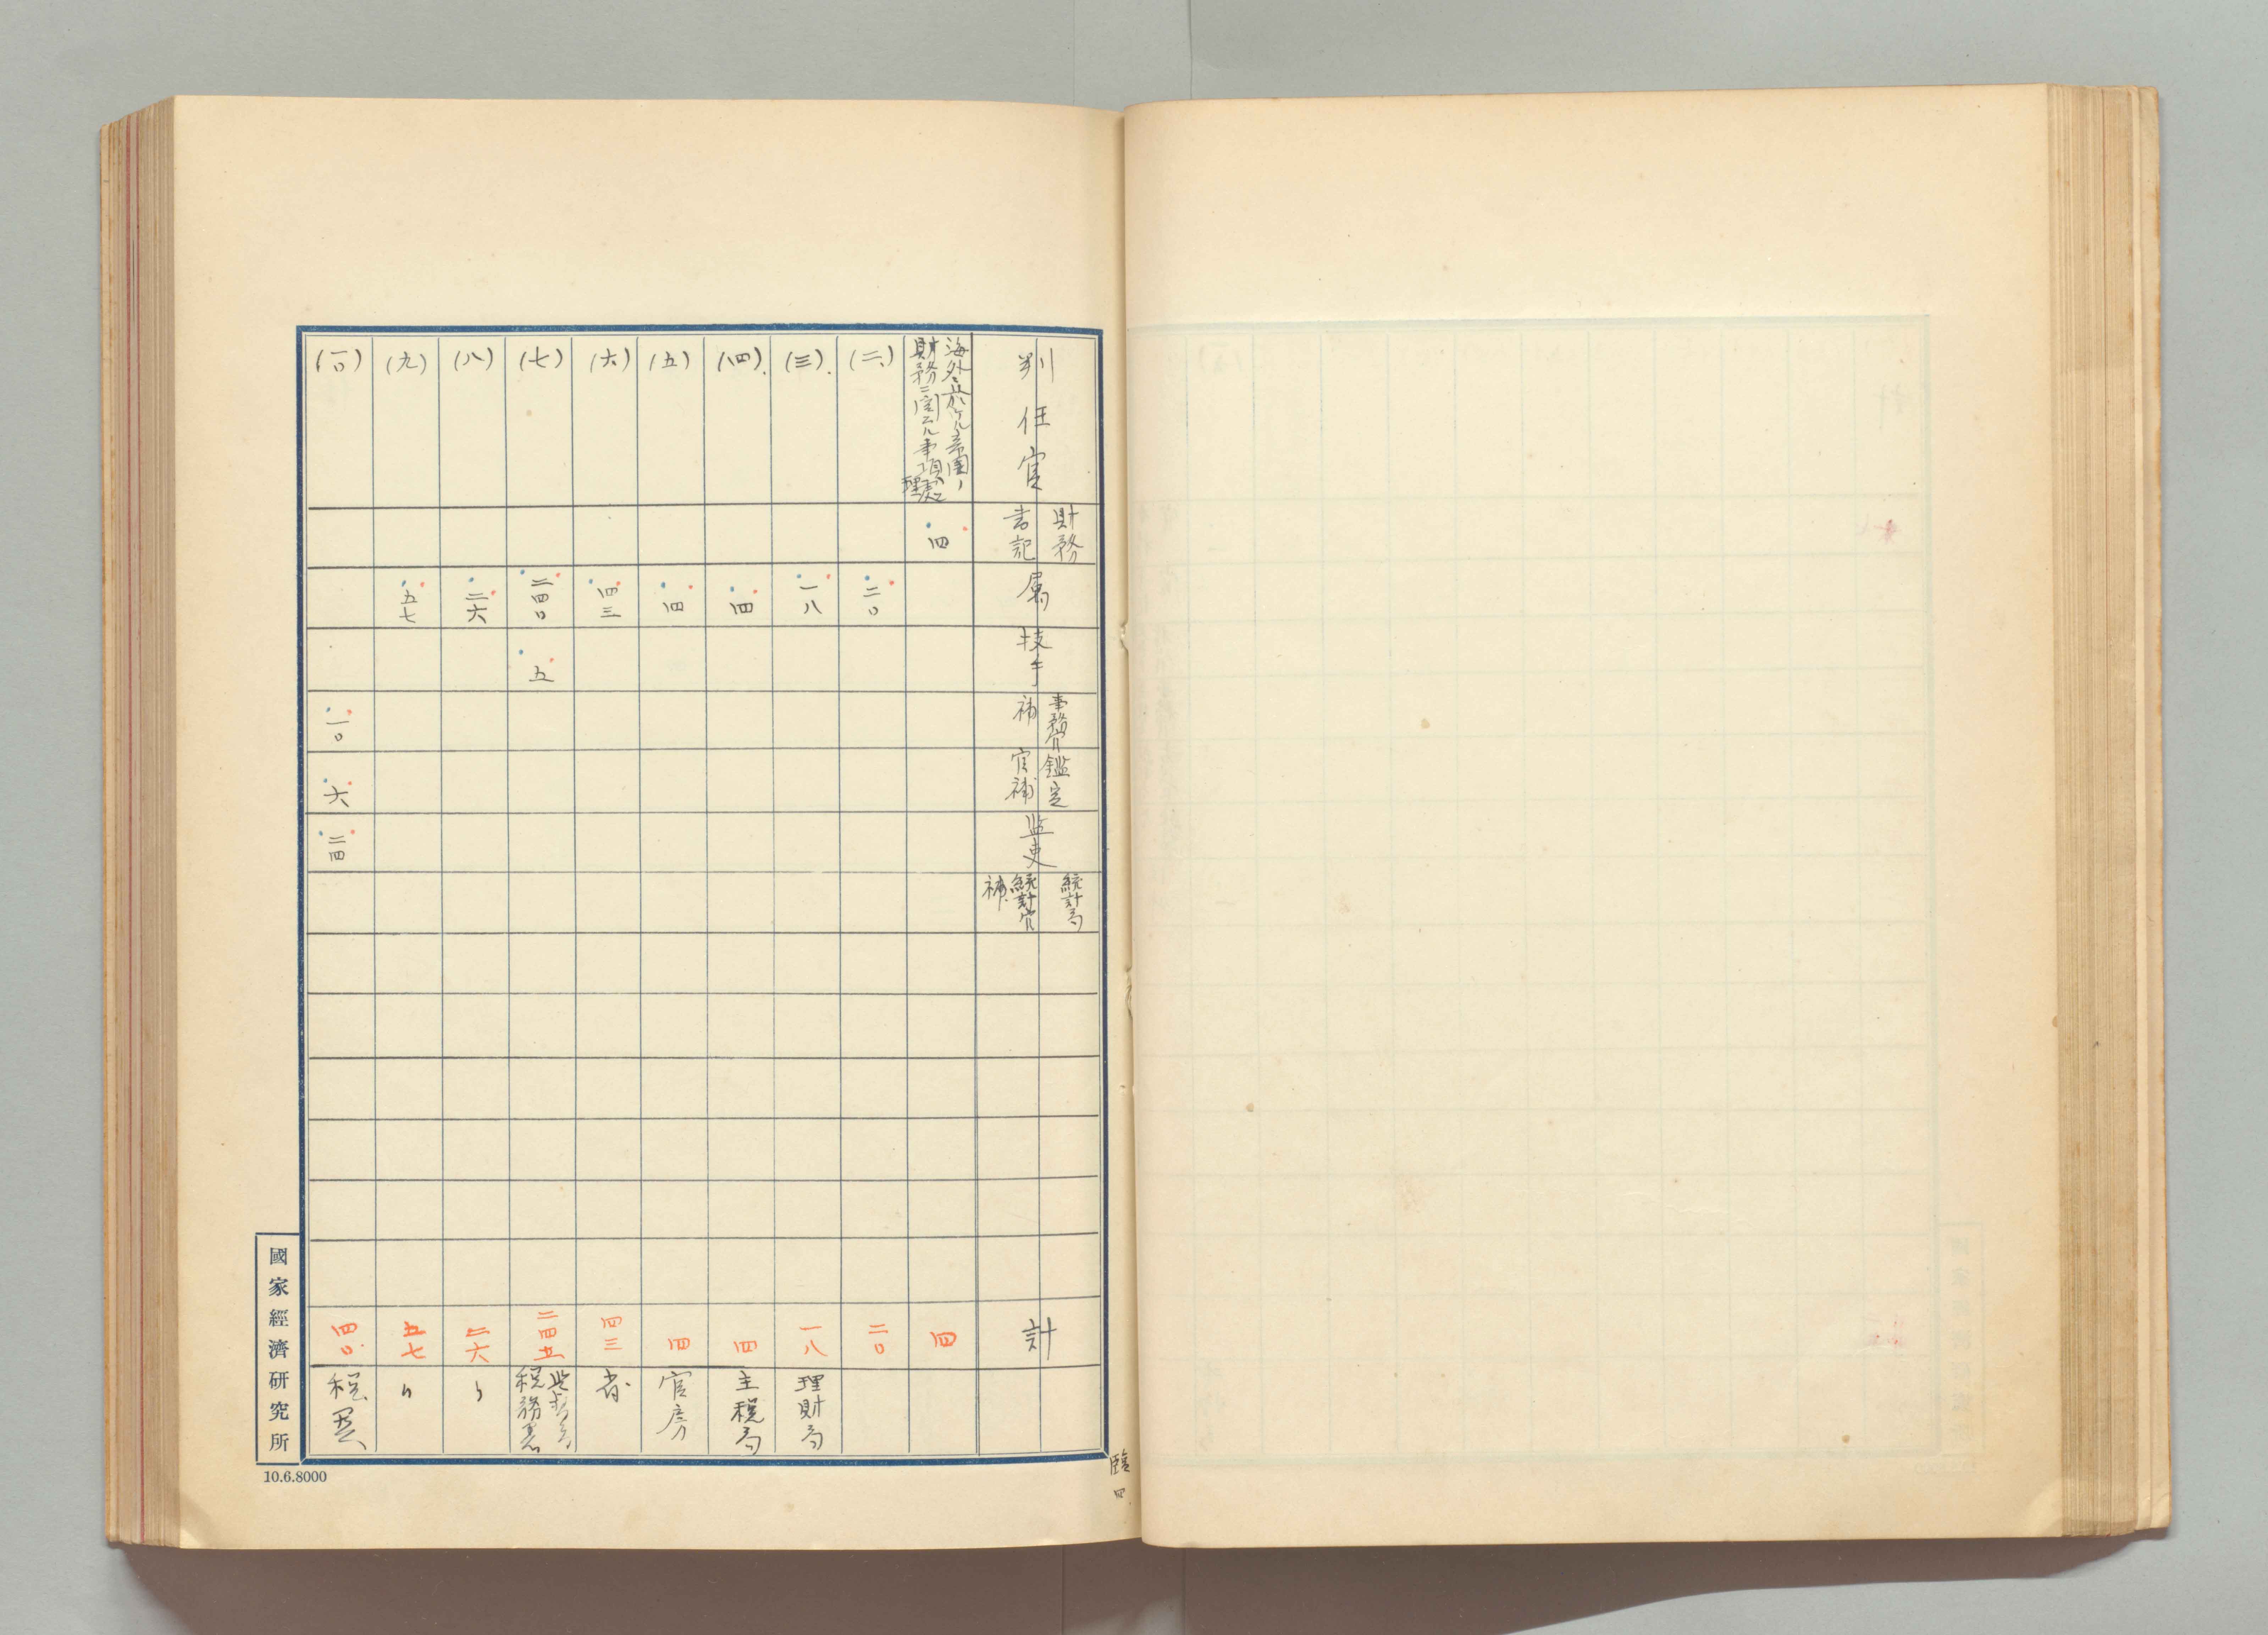 判任官
財務書記
属
技手
事務官補
鑑定官補
監吏
統計局統計官補
計
海外ニ於ケル帝國ノ
財務ニ関スル事項処理
四
四
(二)
二〇
二〇
(三)
一八
一八
理財局
(四)
四
四
主税局
(五)
四
四
官房
(六)
四三
四三
(七)
二四〇
五
二四五
税務署
(八)
二六
二六
〃
(九)
五七
五七
〃
(一〇)
一〇
六
二四
四〇
國家經濟研究所
10.6.8000
臨四